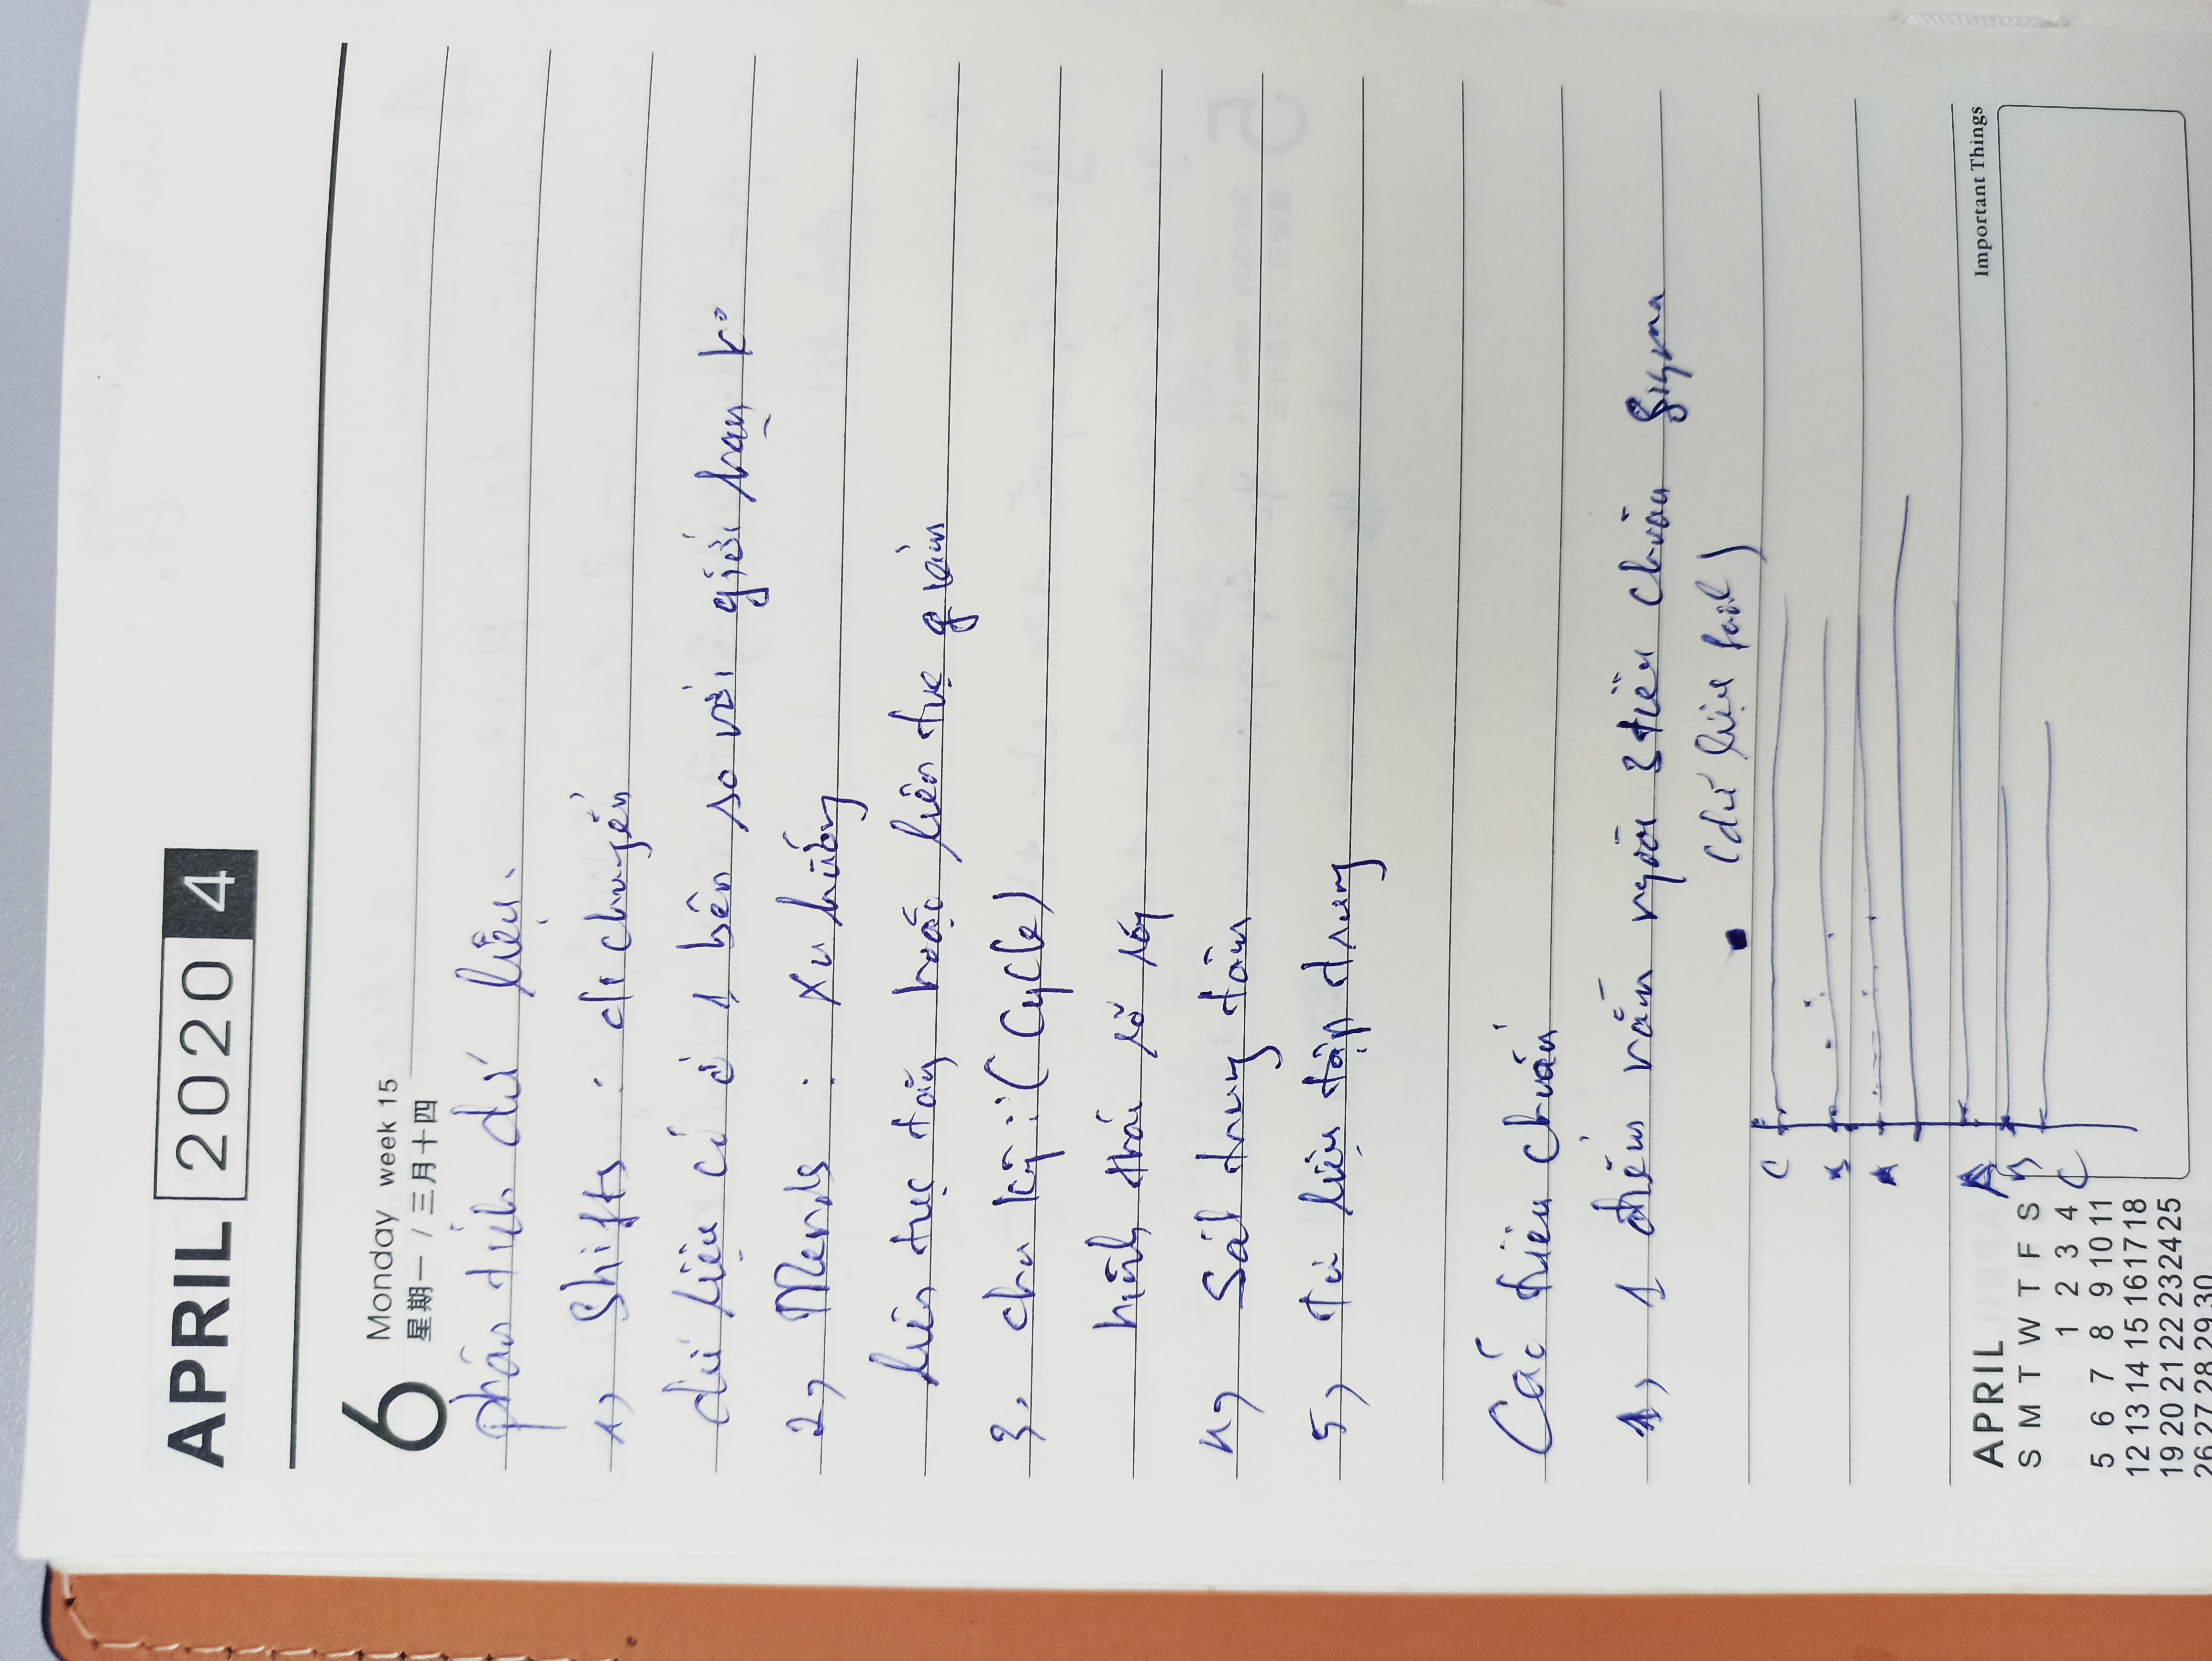 APRIL 2020 4
6 Monday week 15
星期一 / 三月十四
phân tích dữ liệu.
1, Shifts : di chuyển
dữ liệu cứ ở 1 bên so với giới hạn
2, : Xu hướng
liên tục tăng hoặc liên tục giảm
3. chu kỳ : (Cycle)
hình thái
4, Sát trung tâm
5, liệu tập trung
Các tiêu chuẩn
1, 1 điểm nằm ngoài 3 tiêu chuẩn Sigma
(dữ liệu fail)
C
B
A
A
B
C
APRIL
Important Things
S M T W T F S
1 2 3 4
5 6 7 8 9 10 11
12 13 14 15 16 17 18
19 20 21 22 23 24 25
26 27 28 29 30